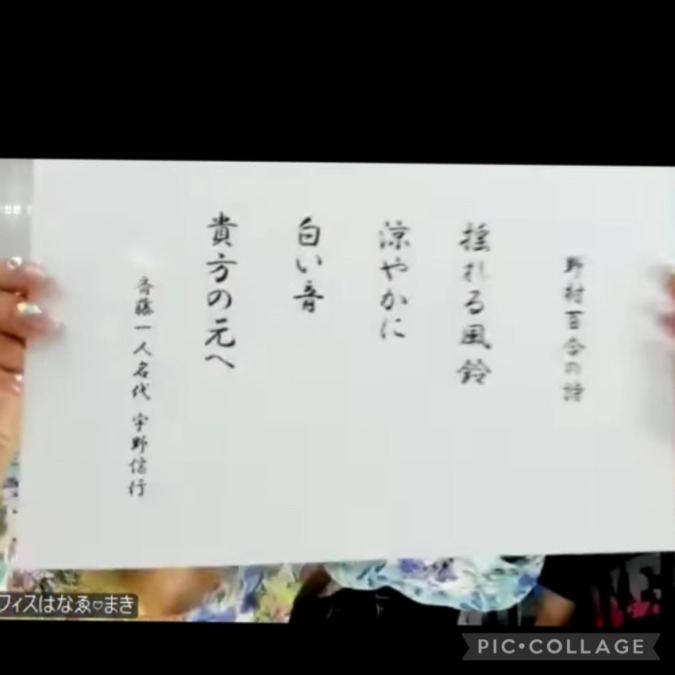 野村百合の詩
揺れる風鈴
涼やかに
白い音
貴方の元へ
斉藤一人名代 宇野信行
フィスはなゑ♡まき
PIC•COLLAGE